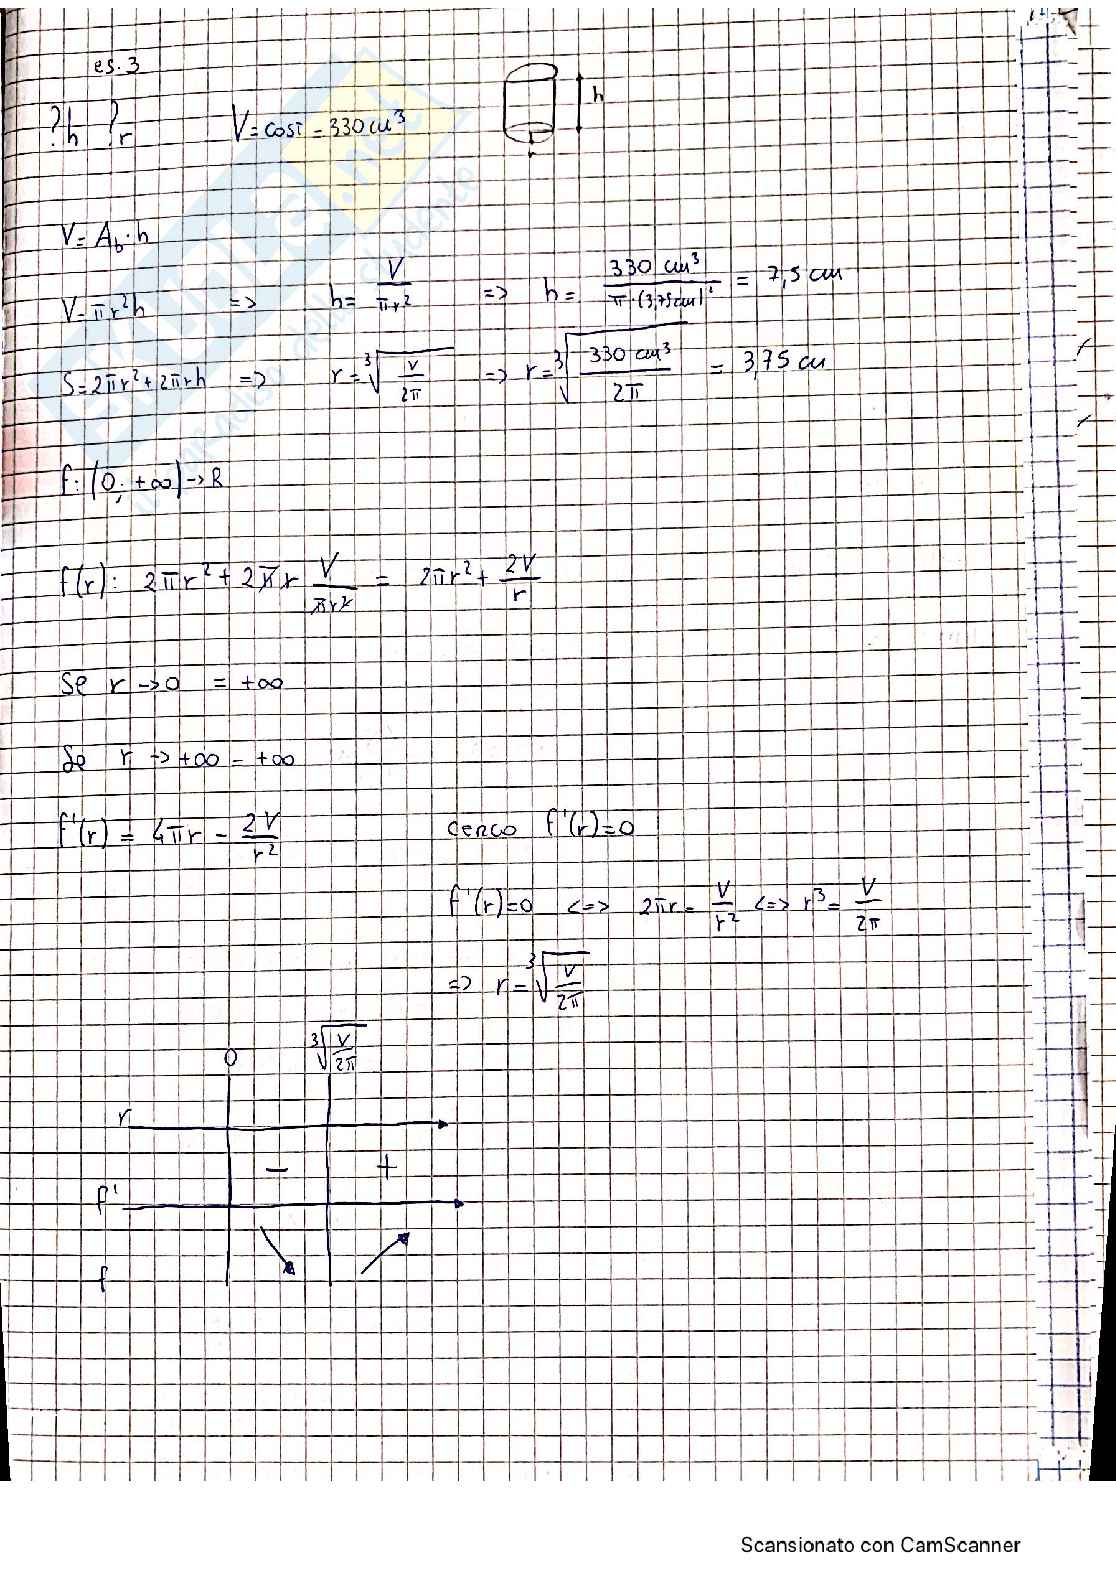 es.3
h
?h ?r V = cost = 330 cm³
r
V = A_b · h
V = πr²h => h = V/πr² => h = 330 cm³/π·(3,75cm)² = 7,5 cm
S = 2πr² + 2πrh => r = ∛(V/2π) => r = ∛(330 cm³/2π) = 3,75 cm
f: (0; +∞) -> R
f(r): 2πr² + 2πr V/πr² = 2πr² + 2V/r
Se r -> 0 = +∞
Se r -> +∞ = +∞
f'(r) = 4πr - 2V/r² cerco f'(r)=0
f'(r)=0 <=> 2πr = V/r² <=> r³ = V/2π
=> r = ∛(V/2π)
0 ∛(V/2π)
r
- +
f'
f ↘ ↗
Scansionato con CamScanner